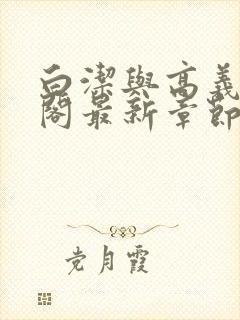 白潔與高義
閣最新章節
党月霞